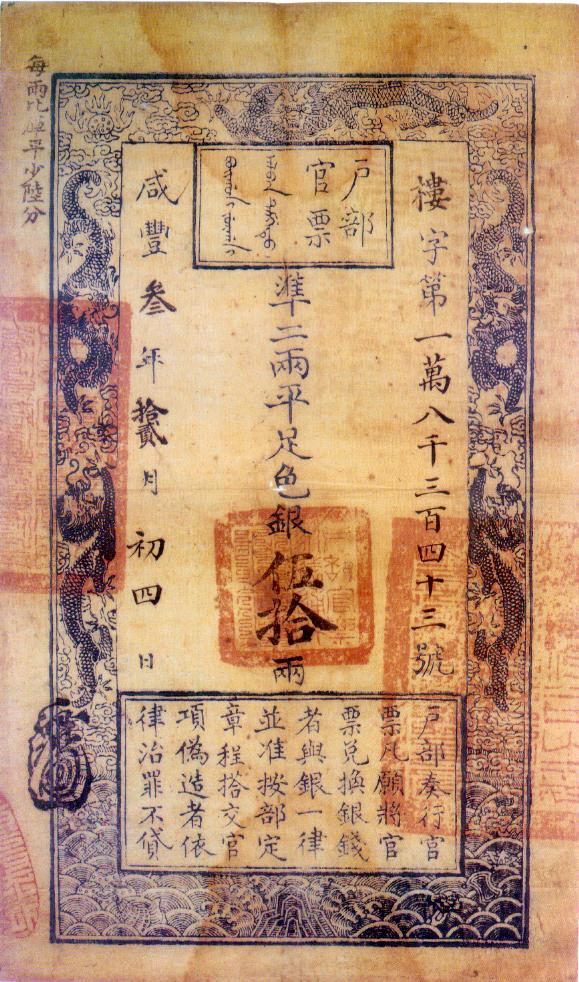 戶部
官票
樓字第一萬八千三百四十三號
準二兩平足色銀伍拾兩
咸豐叁年拾貳月初四日
每兩比庫平少陸分
戶部奏行官
票凡願將官
票兌換銀錢
者與銀一律
並准按部定
章程搭交官
項偽造者依
律治罪不貸